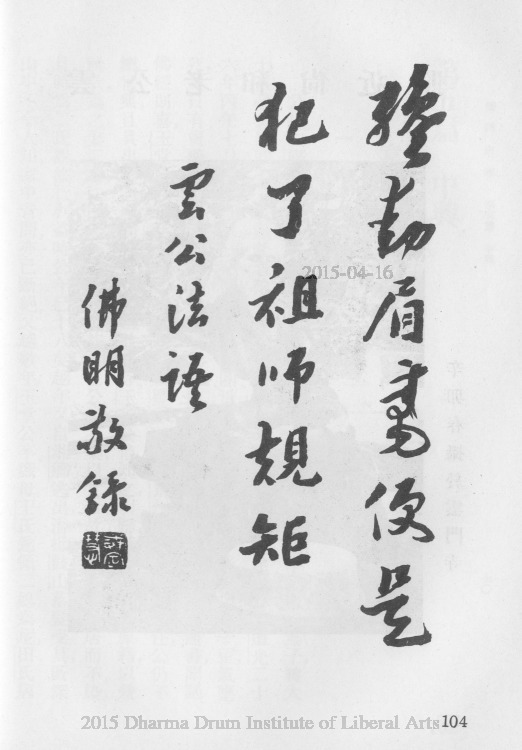 動眉便是
犯了祖師規矩
雲公法語
佛明敬錄
2015-04-16
2015 Dharma Drum Institute of Liberal Arts
104